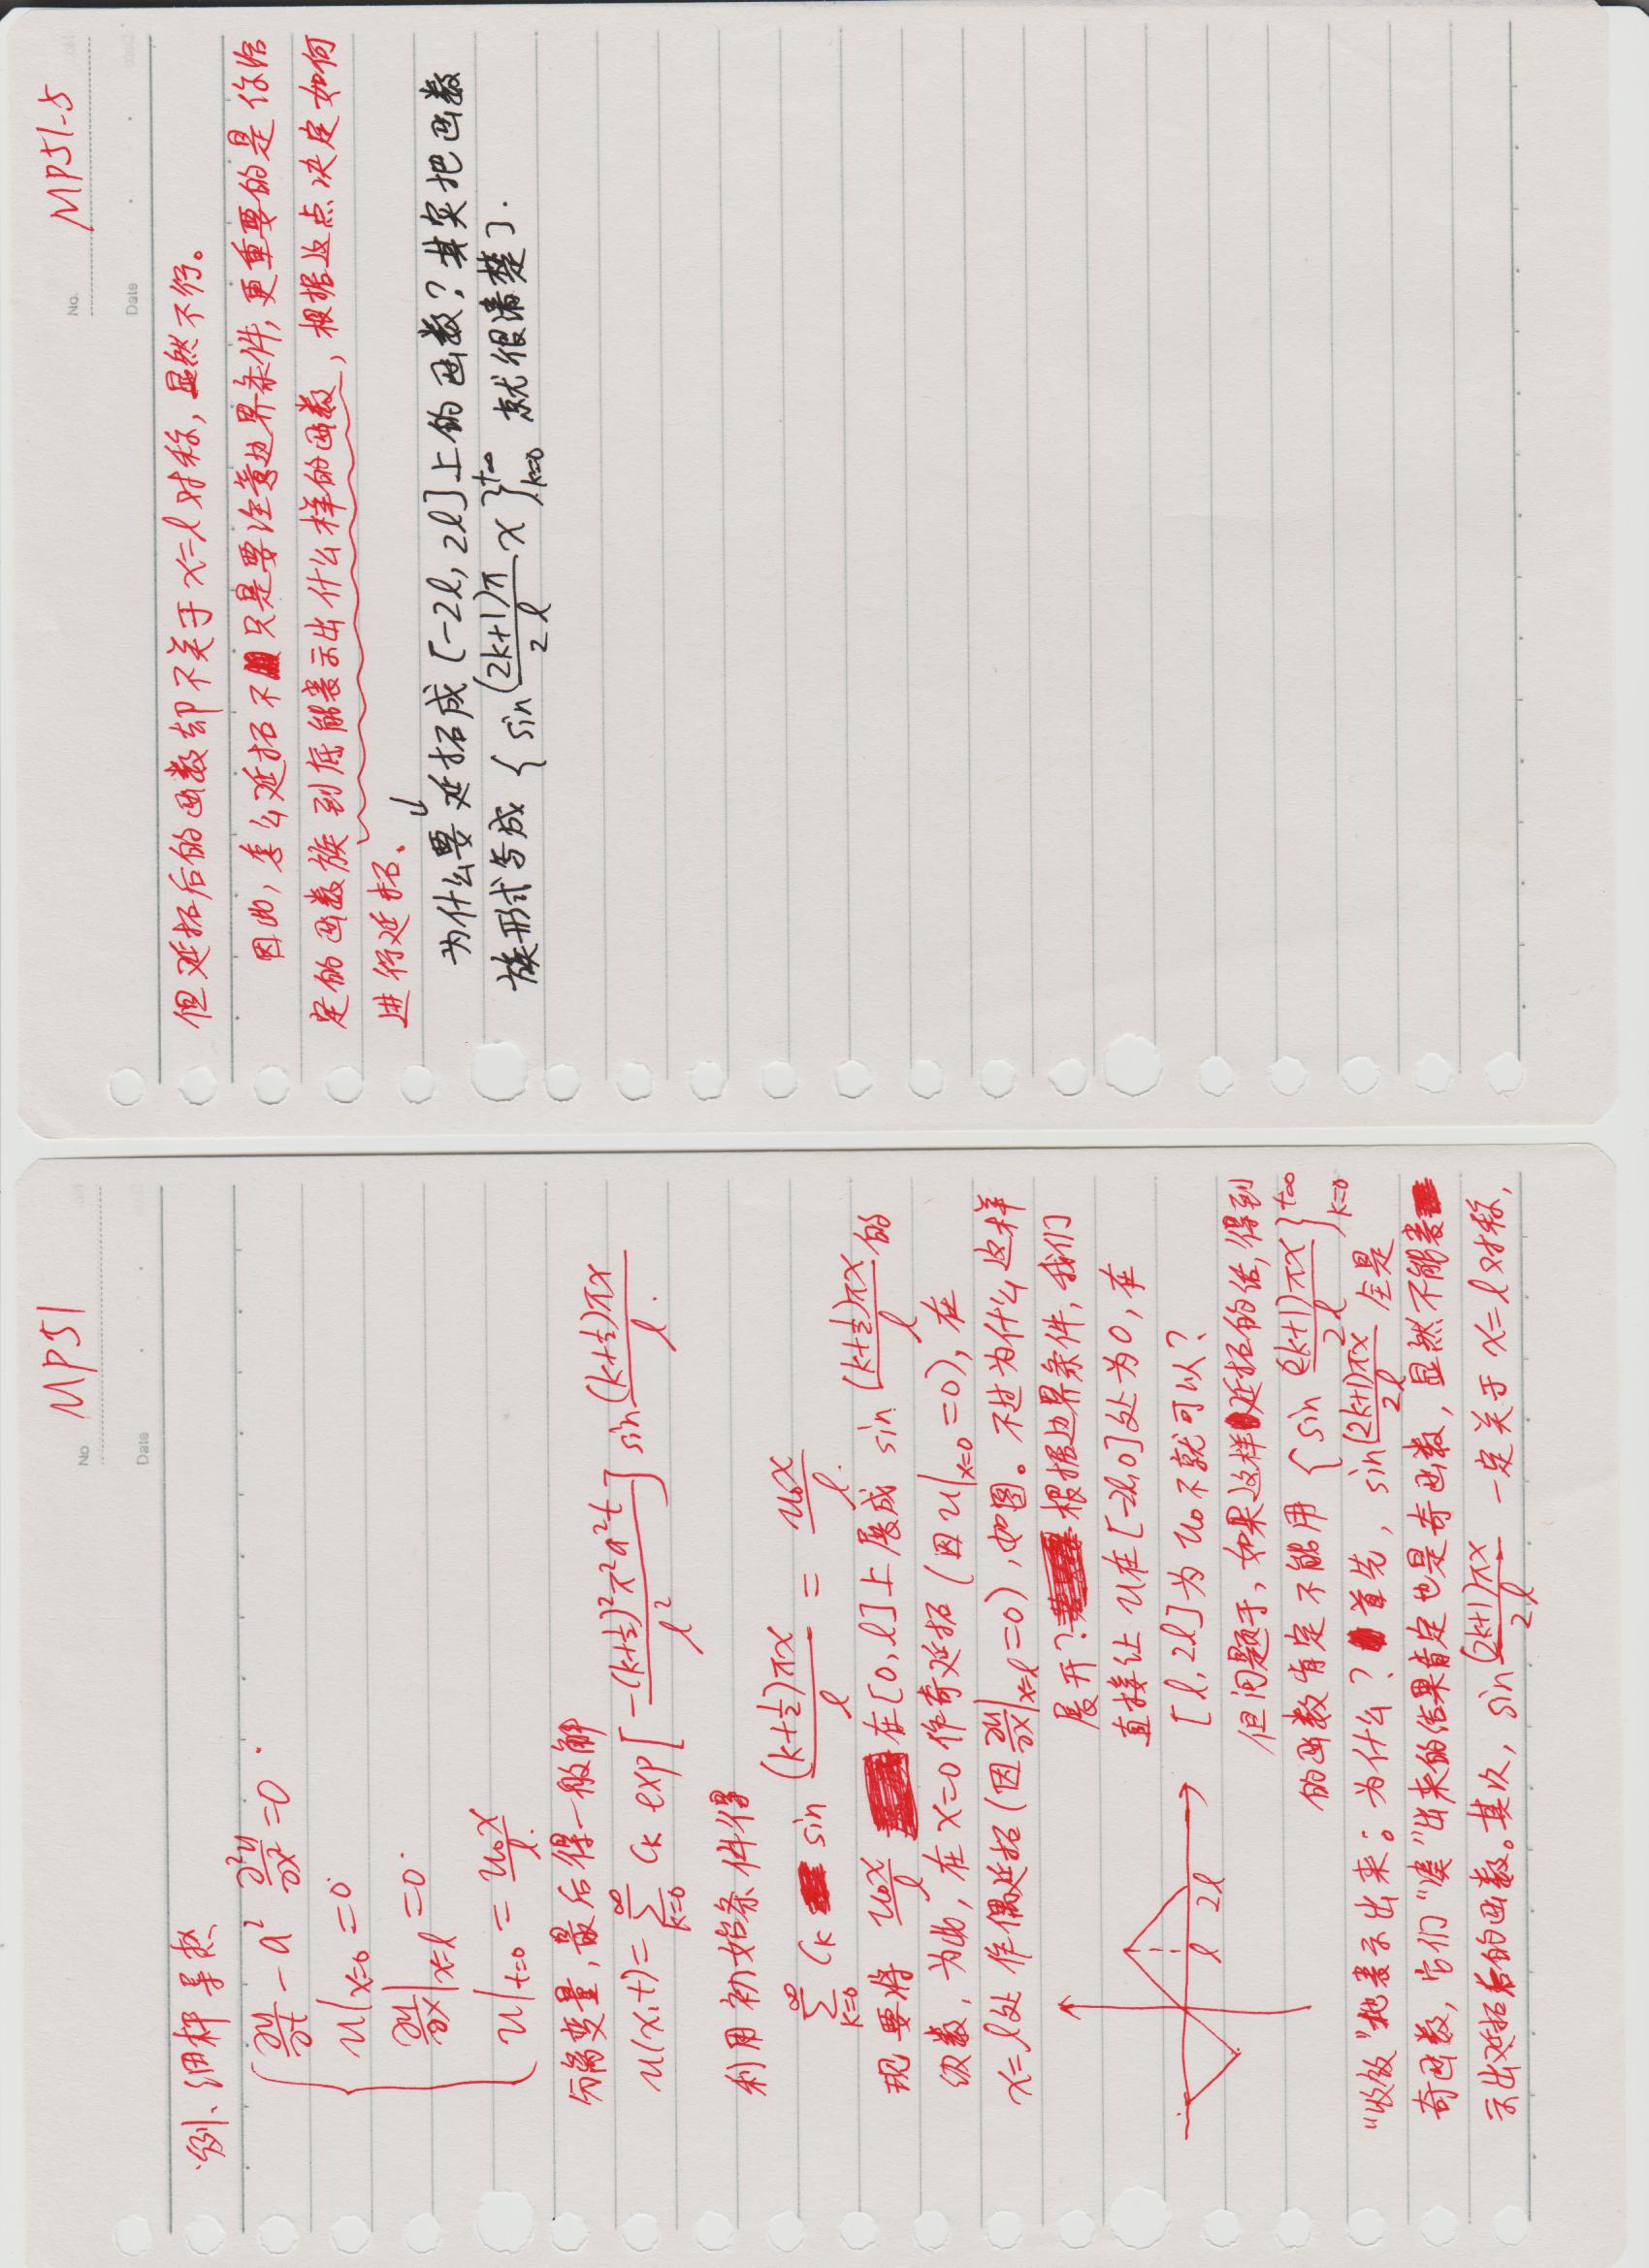 No MP51
Date
例、细杆导热
∂u/∂t - a² ∂²u/∂x² = 0
u|x=0 = 0
∂u/∂x|x=l = 0
u|t=0 = u₀x/l.
分离变量,最后得一般解
u(x,t) = ∑_{k=0}^{∞} Ck exp[-(k+½)²π²a²t / l²] sin (k+½)πx / l.
利用初始条件得
∑_{k=0}^{∞} Ck sin (k+½)πx / l = u₀x / l.
现要将 u₀x/l 在[0,l]上展成 sin (k+½)πx / l 的
级数,为此,在x=0作奇延拓(因u|x=0 = 0),在
x=l处作偶延拓(因∂u/∂x|x=l = 0),如图。不过为什么这样
展开?根据边界条件,我们
直接让u在[-2l,0]处为0,在
[l,2l]为u₀不就可以?
l 2l
但问题于,如果这样延拓的话,得到
的函数肯定不能用 {sin (2k+1)πx / 2l}_{k=0}^{+∞}
“收敛”地表示出来。为什么?首先,sin (2k+1)πx / 2l 全是
奇函数,它们“凑”出来的结果肯定也是奇函数,显然不能表
示出延拓后的函数。其次,sin (2k+1)πx / 2l 一定关于x=l对称,
No. MP51-5
Date
但延拓后的函数却不关于x=l对称,显然不行。
因此,怎么延拓不只是要注意边界条件,更重要的是你给
定的函数族到底能表示出什么样的函数,根据这点决定如何
进行延拓.
↓
为什么要延拓成[-2l,2l]上的函数?其实把函数
族形式写成 {sin (2k+1)π / 2l x}_{k=0}^{+∞} 就很清楚了.